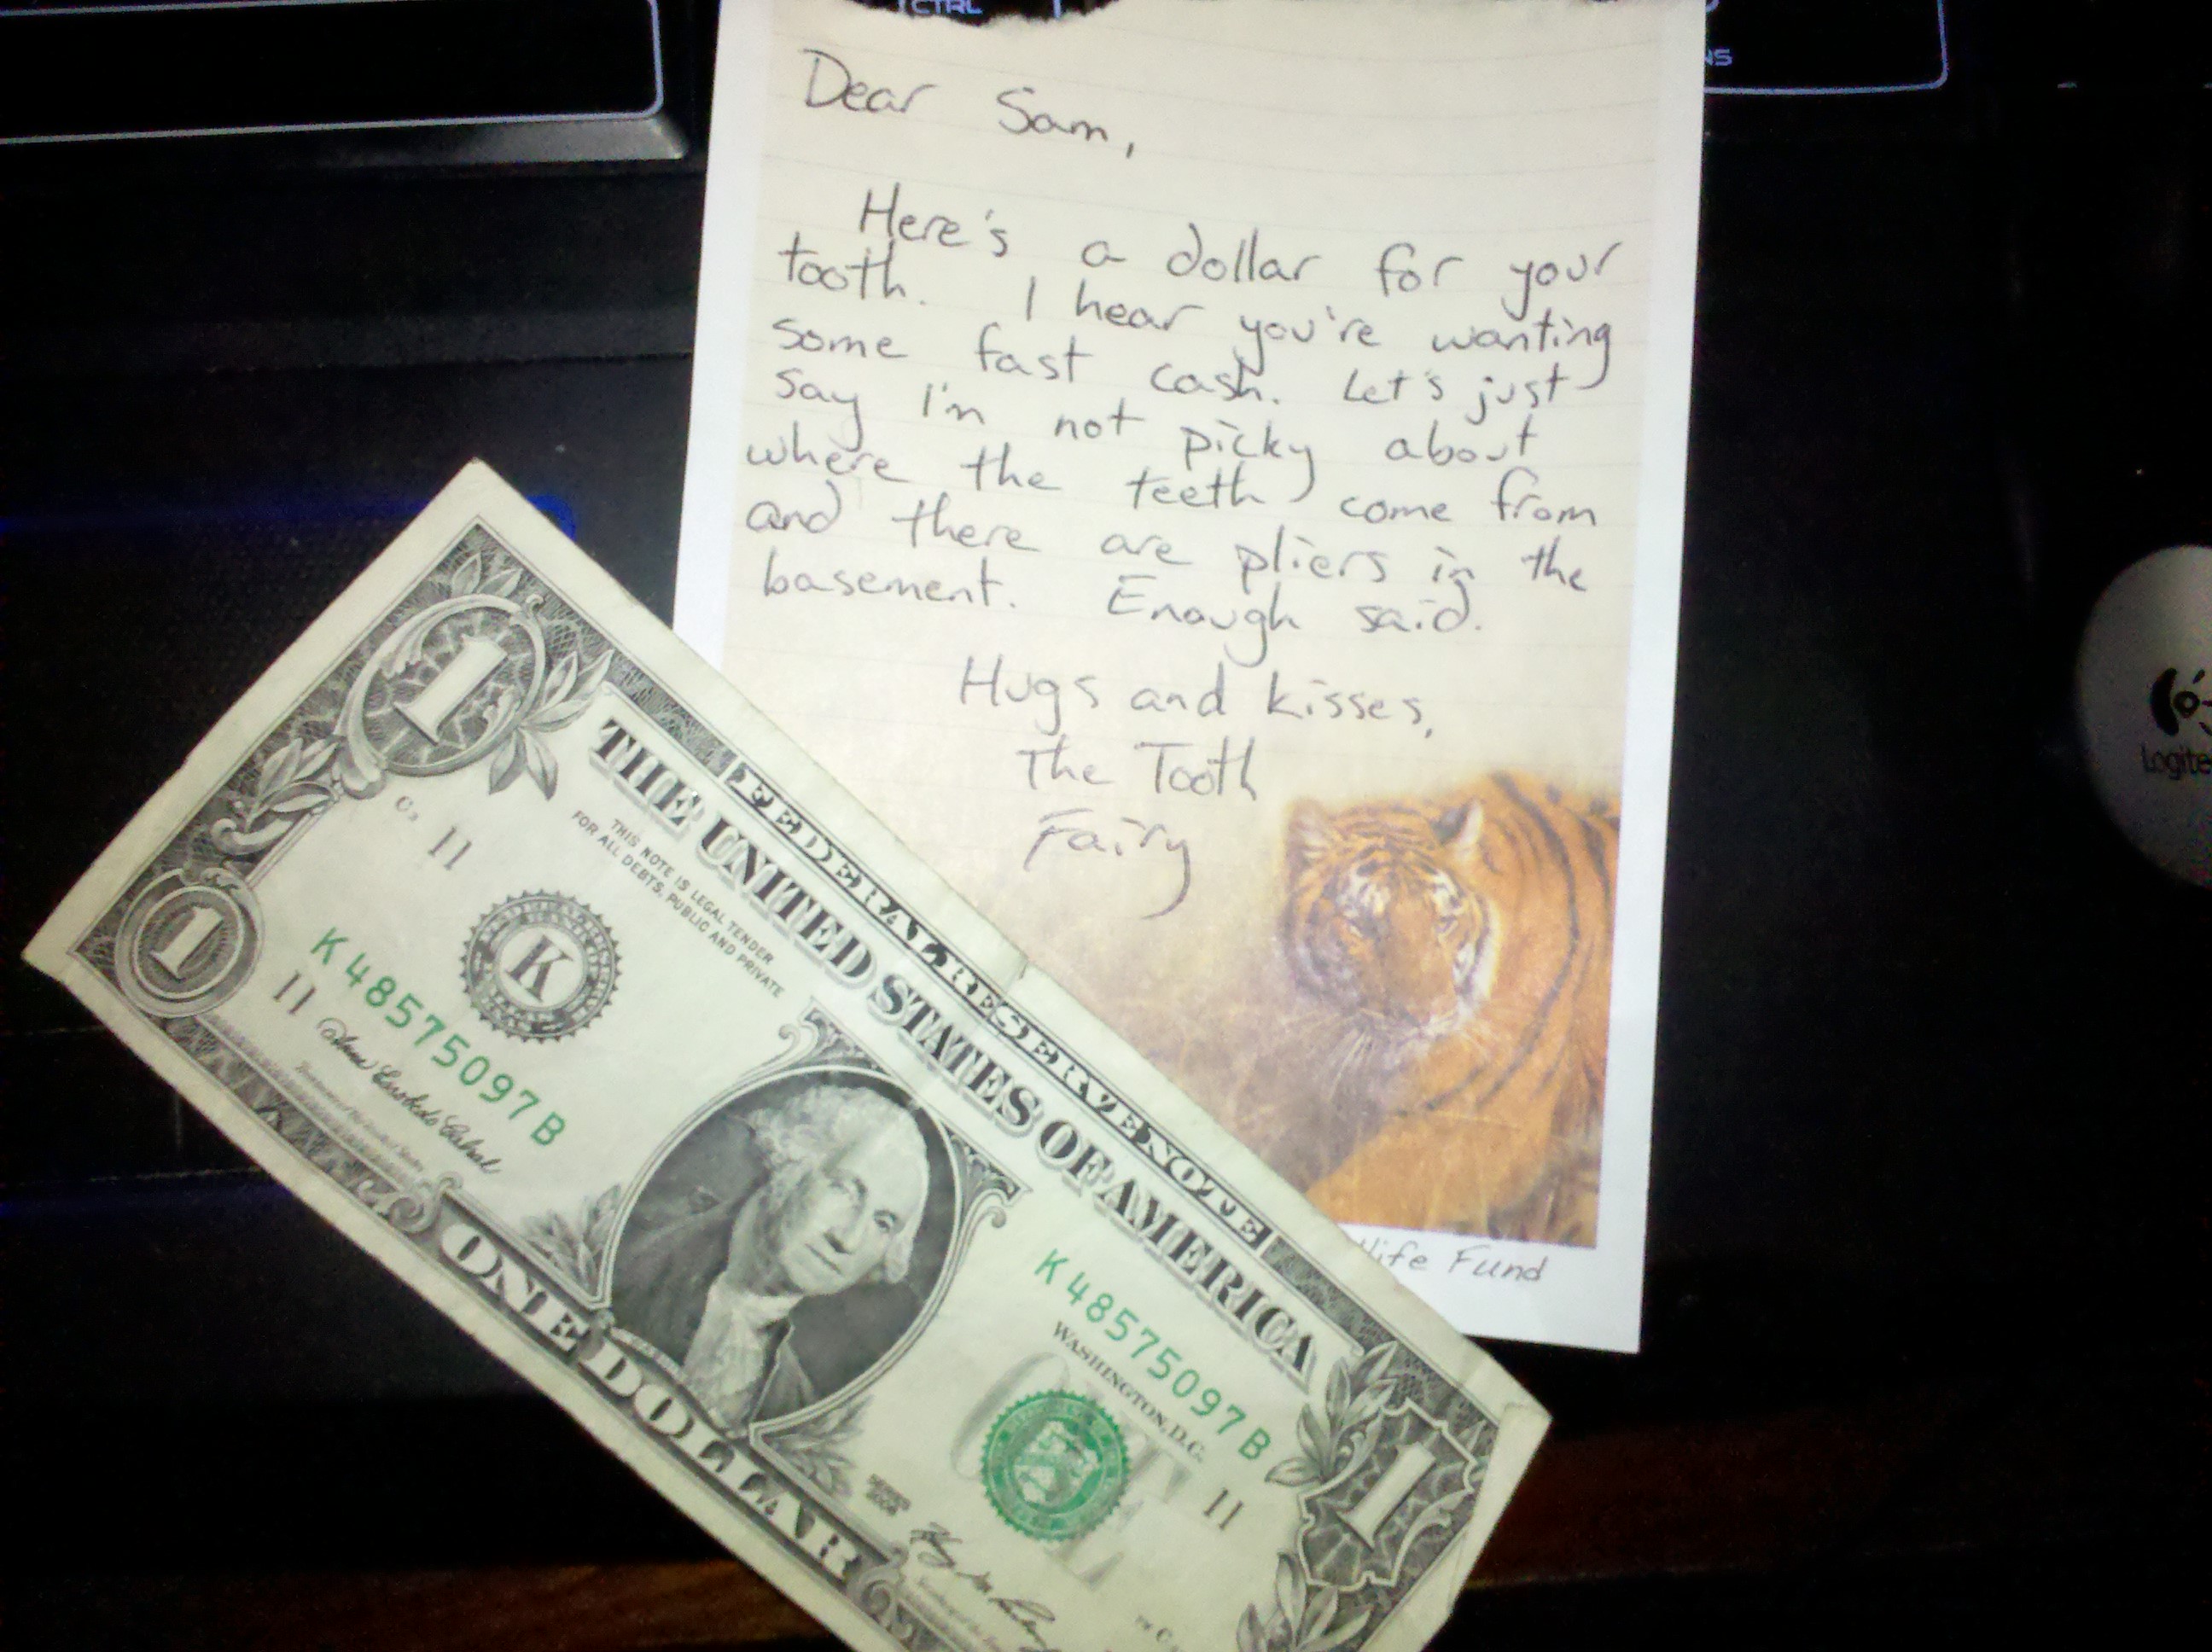 CTRL
Dear Sam,
Here's a dollar for your
tooth. I hear you're wanting
some fast cash. Let's just
say I'm not picky about
where the teeth come from
and there are pliers in the
basement. Enough said.
Hugs and kisses,
The Tooth
Fairy
life Fund
FEDERAL RESERVE NOTE
THE UNITED STATES OF AMERICA
THIS NOTE IS LEGAL TENDER
FOR ALL DEBTS, PUBLIC AND PRIVATE
1
1
11
K
K 48575097 B
11
K 48575097 B
WASHINGTON, D.C.
11
1
ONE DOLLAR